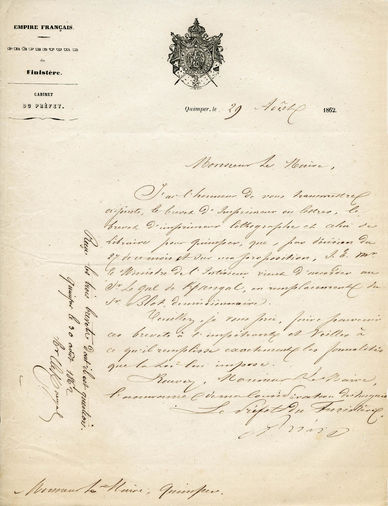 EMPIRE FRANÇAIS.
PRÉFECTURE
du
Finistère.
CABINET
DU PRÉFET.
Quimper, le 29 Août 1862.
Monsieur le Maire,
J'ai l'honneur de vous transmettre
ci-joints, le brevet d'Imprimeur en lettres, le
brevet d'imprimeur lithographe et celui de
libraire pour quimper, que, par décision du
et sur ma proposition, S. E. Mr
le Ministre de l'Intérieur vient d'accorder au
Sr. Le Gal de Kerangal, en remplacement du
Sr. Blot, démissionnaire.
Veuillez, je vous prie, faire parvenir
ces brevets à l'impétrant et veiller à
ce qu'il remplisse exactement les formalités
que la loi lui impose.
Recevez, Monsieur le Maire,
l'assurance de ma considération distinguée
Le Préfet du Finistère,
Reçu les trois brevets dont il est question
Quimper le 30 août 1862
Monsieur le Maire, Quimper.